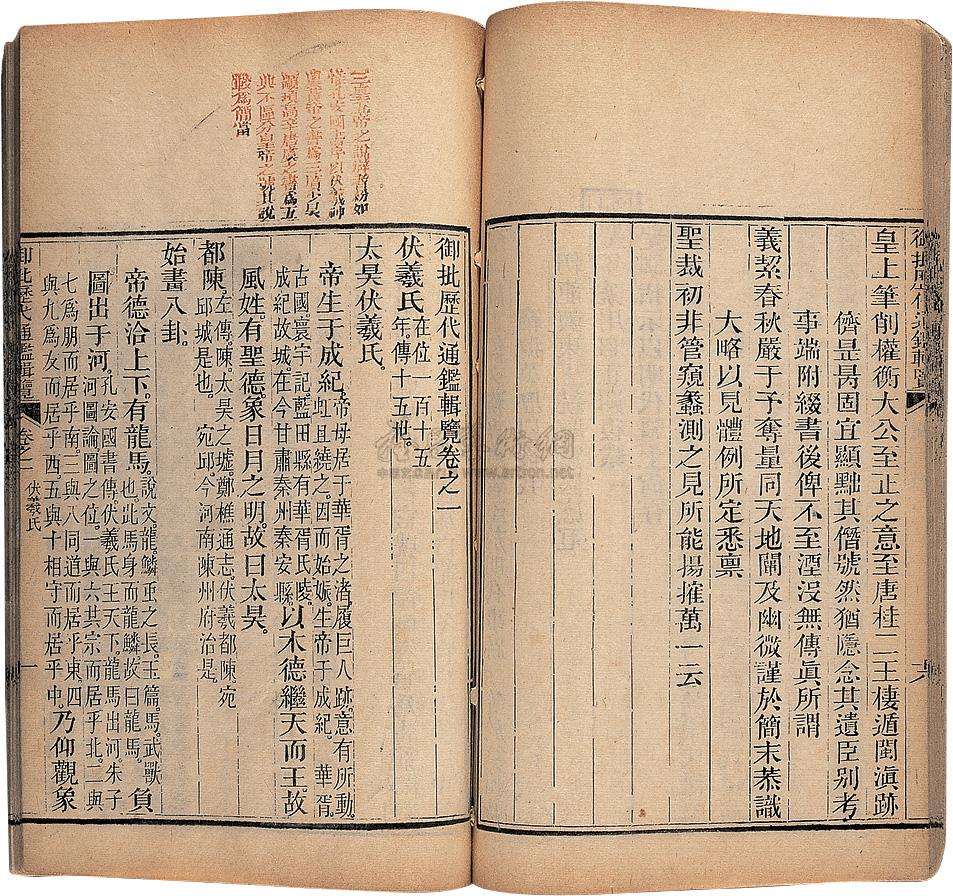 皇上筆削權衡大公至正之意至唐桂二王棲遁閩滇跡
儕昰昺固宜顯黜其僭號然猶隱念其遺臣别考
事端附綴書後俾不至湮没無傳眞所謂
義絜春秋嚴于予奪量同天地闡及幽微謹於簡末恭識
大略以見體例所定悉禀
聖裁初非管窺蠡測之見所能揚搉萬一云
三皇五帝之說
爲簡當
御批歷代通鑑輯覽卷之一
伏羲氏在位一百十五年。傳十五世。
太昊伏羲氏。
帝生于成紀。帝母居于華胥之渚。履巨人跡。意有所動。虹且繞之。因而始娠。生帝于成紀。 華胥。古國。寰宇記。藍田縣有華胥氏陵。成紀故城。在今甘肅秦州秦安縣。以木德繼天而王。故
風姓。有聖德。象日月之明。故曰太昊。
都陳。左傳。陳。太昊之墟。鄭樵通志。伏羲都陳。宛邱城是也。 宛邱。今河南陳州府治是。
始畫八卦。
帝德洽上下。有龍馬。說文。龍。鱗蟲之長。玉篇。馬。武獸也。此馬身而龍鱗。故曰龍馬。負
圖出于河。孔安國書傳。伏羲氏王天下。龍馬出河。朱子河圖論。圖之位。一與六共宗而居乎北。二與七爲朋而居乎南。三與八同道而居乎東。四與九爲友而居乎西。五與十相守而居乎中。乃仰觀象
御批歷代通鑑輯覽 卷之一 伏羲氏 一